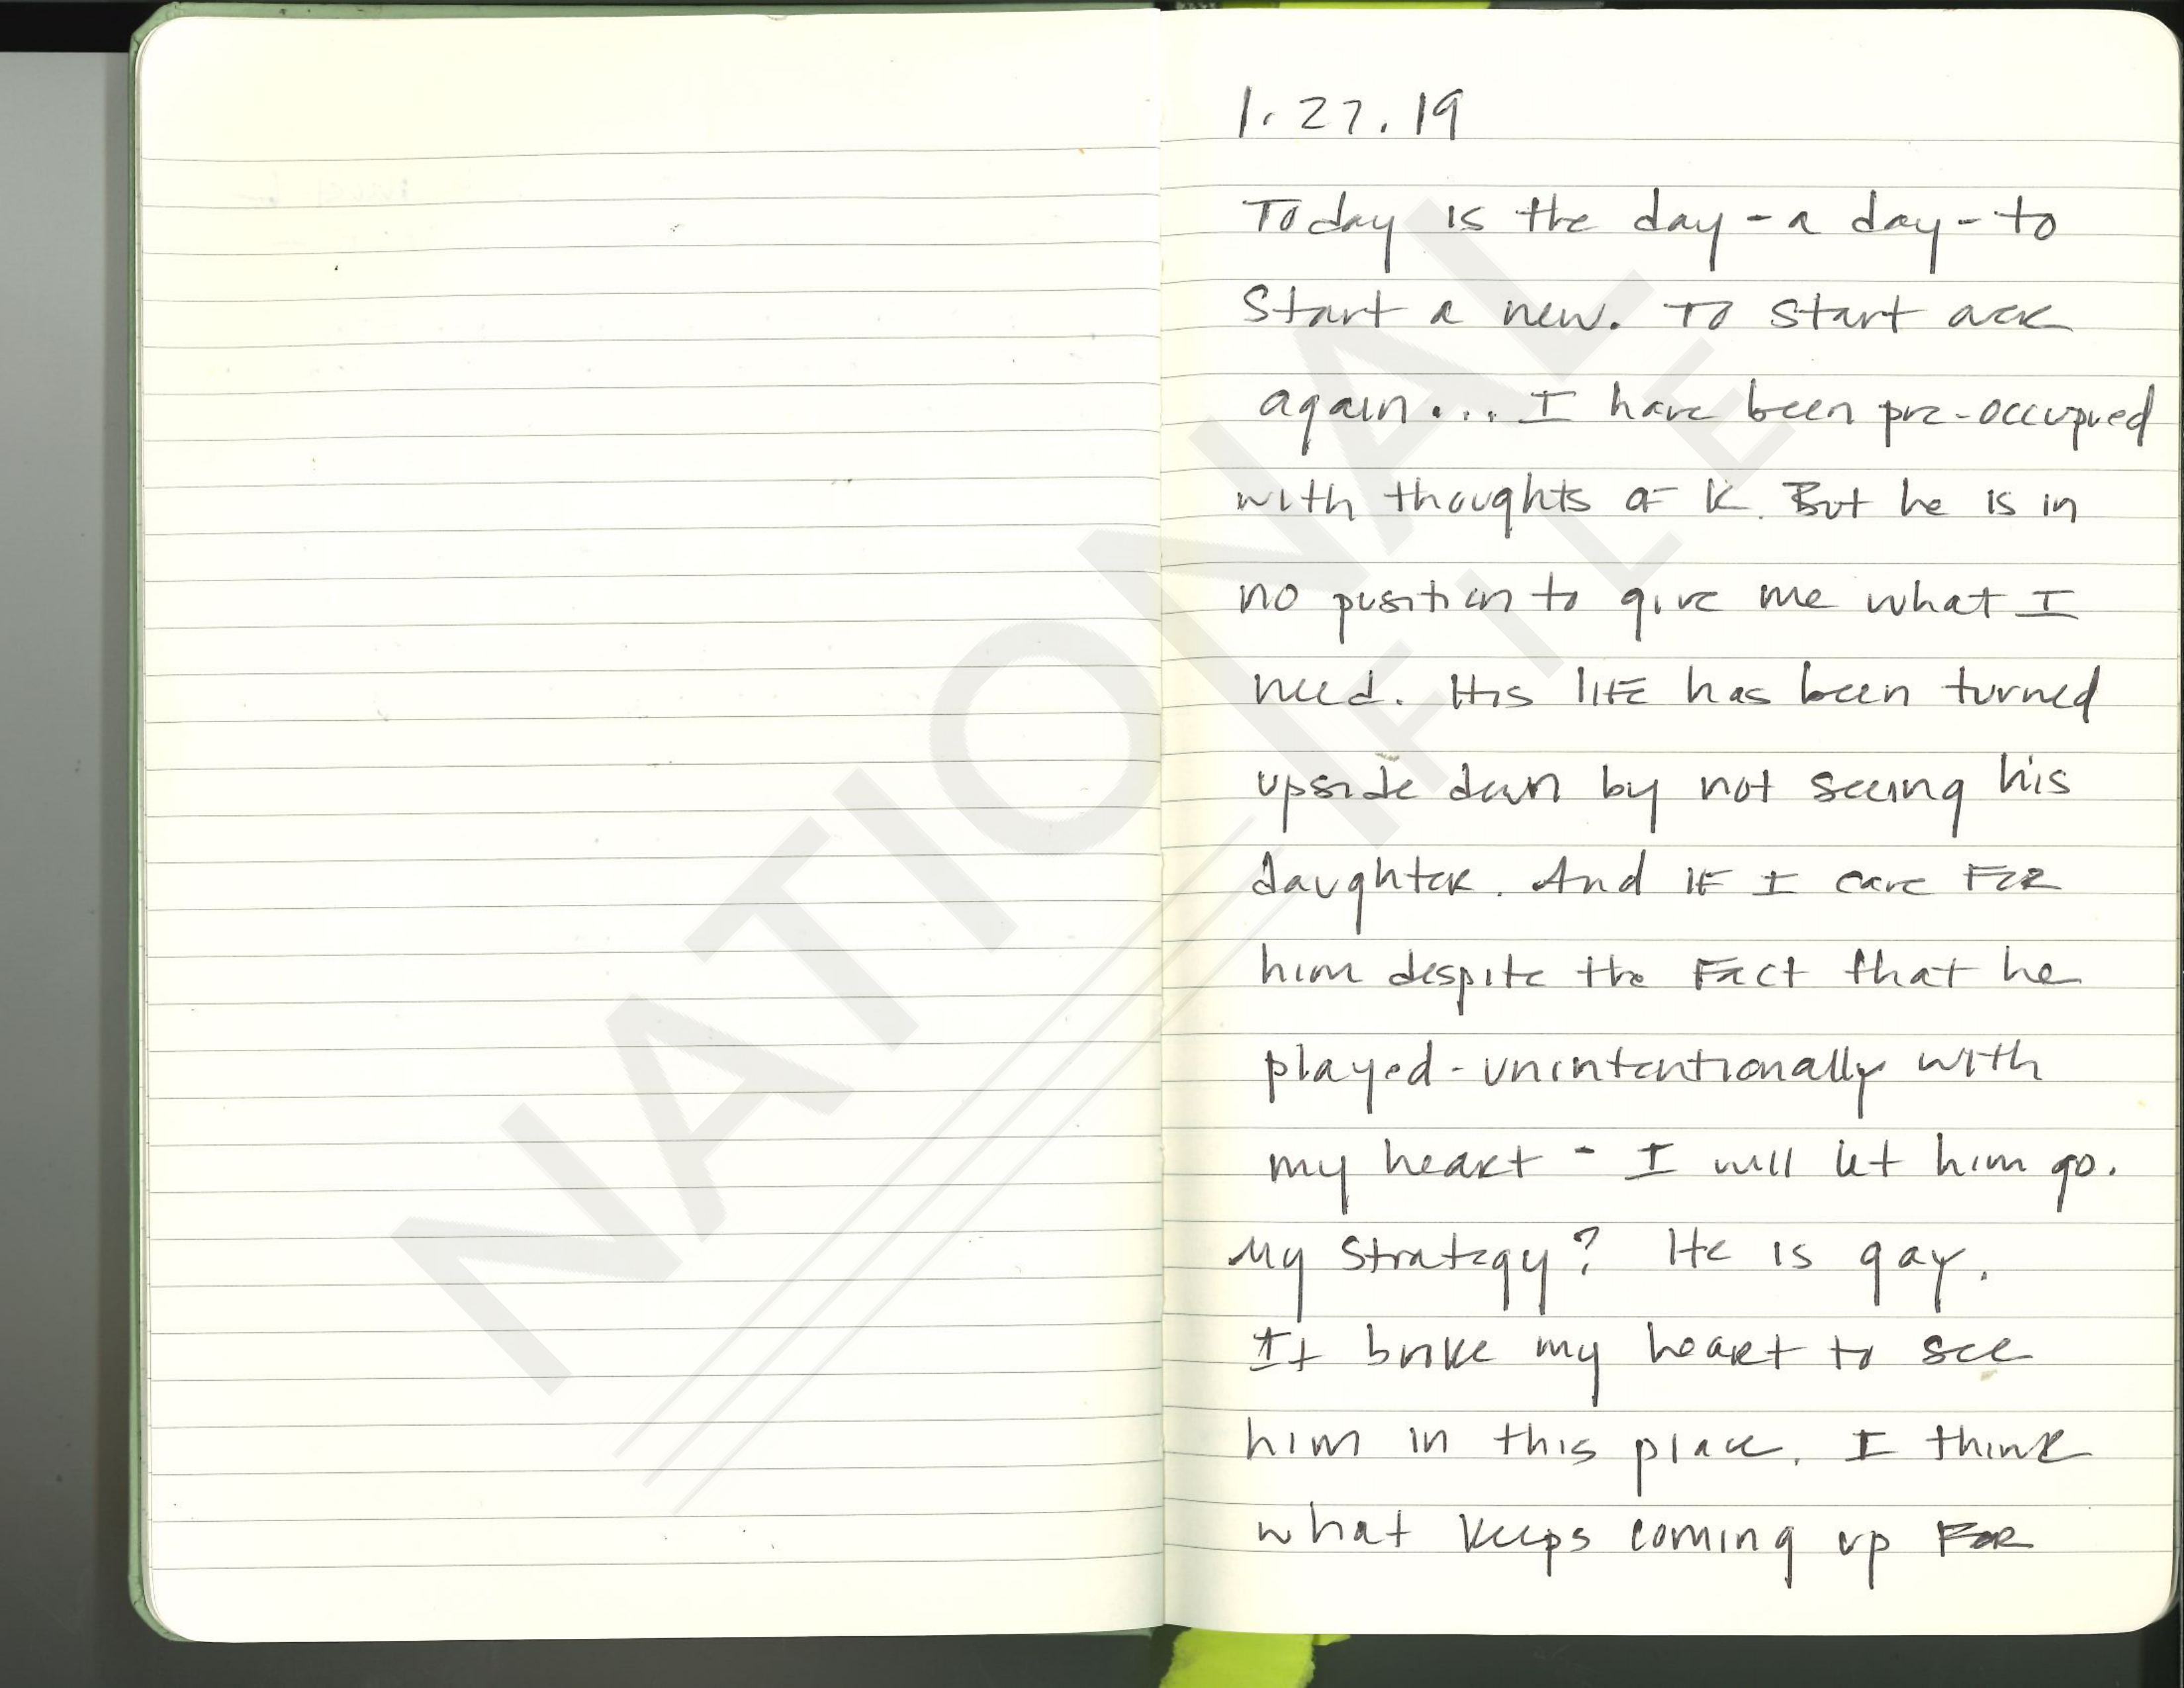 1.27.19
Today is the day - a day - to
Start a new. To start
again... I have been pre-occupied
with thoughts of K. But he is in
no position to give me what I
need. His life has been turned
upside down by not seeing his
daughter. And if I care For
him despite the Fact that he
played - unintentionally with
my heart - I will let him go.
My Strategy? He is gay.
It broke my heart to see
him in this place. I think
what keeps coming up For
NATIONAL
FILE